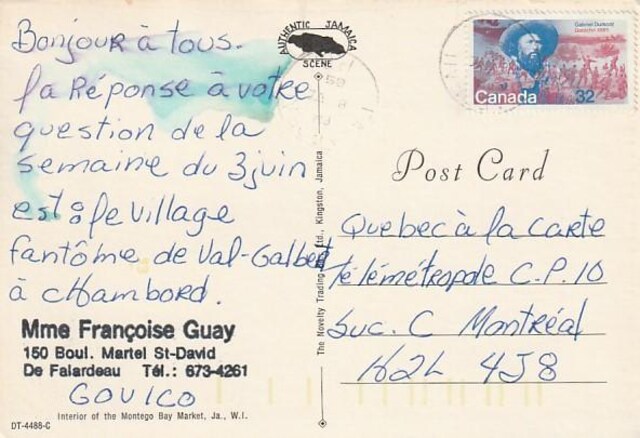 Bonjour à tous.
la Réponse à votre
question de la
semaine du 3 juin
est : le village
fantôme de Val-Galbert
à Chambord.
Mme Françoise Guay
150 Boul. Martel St-David
De Falardeau Tél.: 673-4261
GOVICO
Interior of the Montego Bay Market, Ja., W.I.
DT-4488-C
AUTHENTIC JAMAICA
SCENE
The Novelty Trading Ltd., Kingston, Jamaica
Gabriel Dumont
Batoche 1885
Canada 32
Post Card
Quebec à la carte
Télémétropole C.P. 10
Suc. C Montréal
H2L 4J8